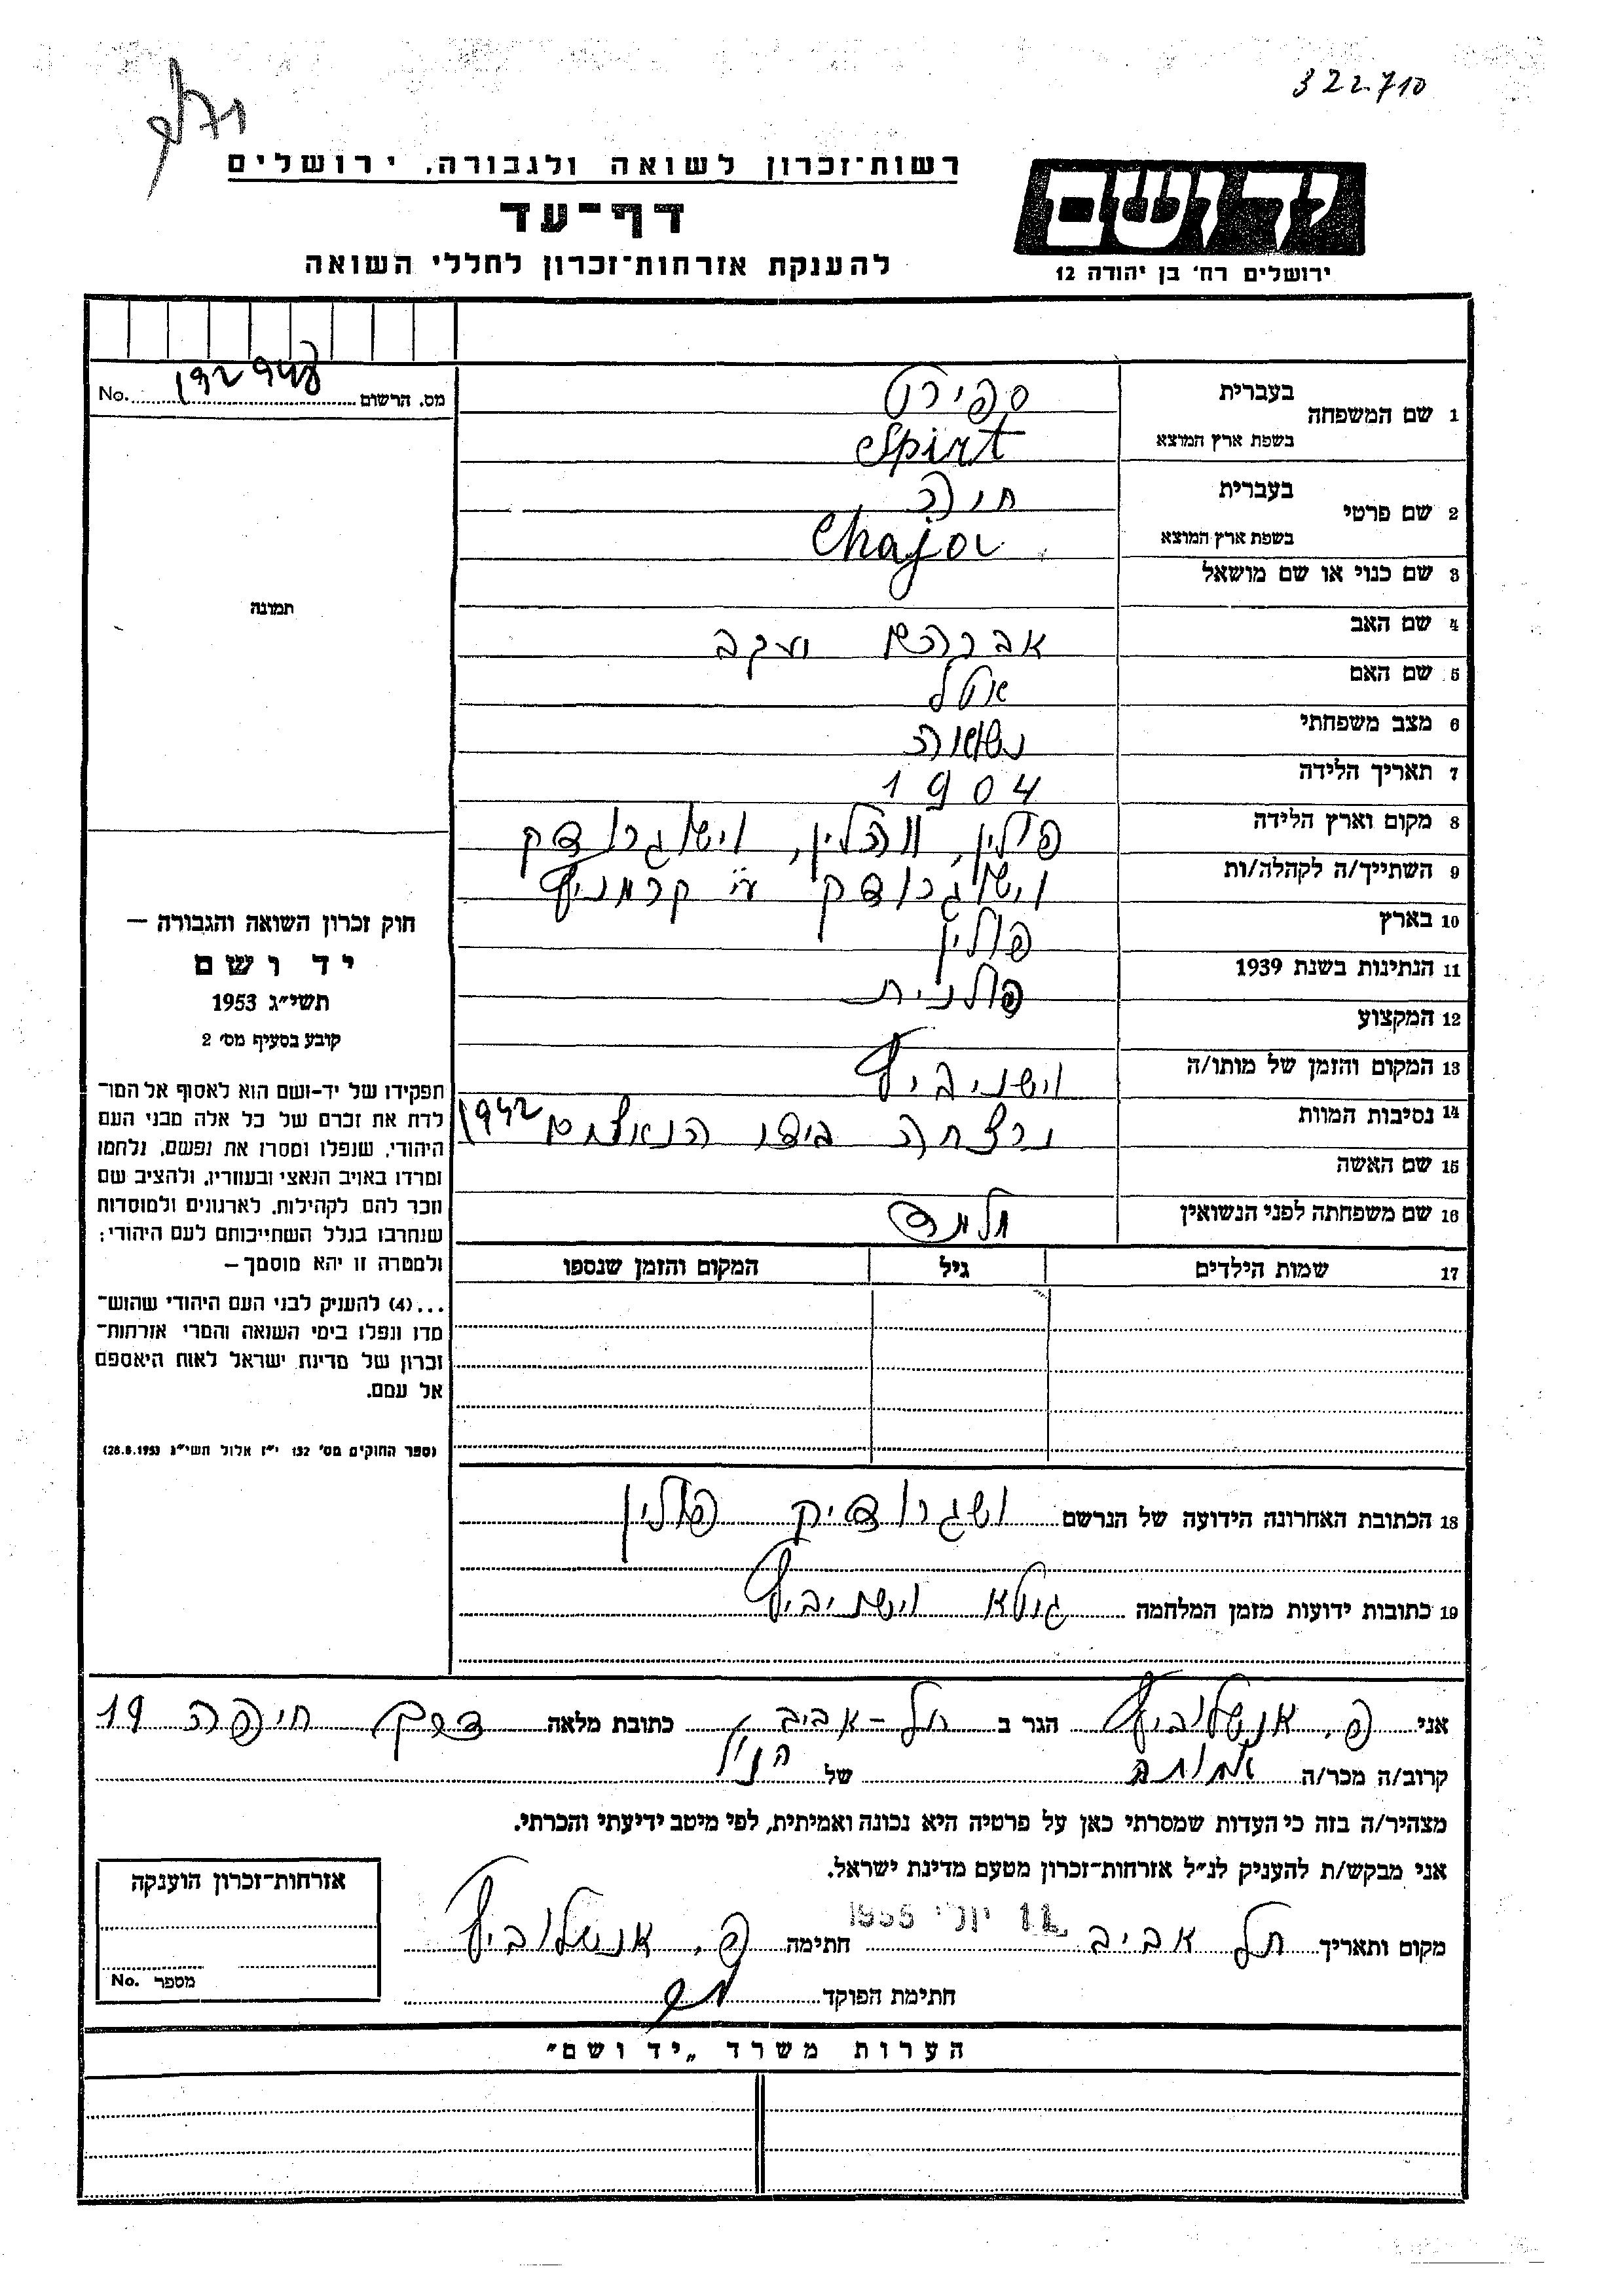 322710
רשות־זכרון לשואה ולגבורה, ירושלים
דף־עד
להענקת אזרחות־זכרון לחללי השואה
יד ושם
ירושלים רח' בן יהודה 12
מס. הרשום 192948 No.
1 שם המשפחה בעברית ספירט
בשפת ארץ המוצא Spirt
2 שם פרטי בעברית חיה
בשפת ארץ המוצא Chaja
3 שם כנוי או שם מושאל
4 שם האב אברהם יעקב
5 שם האם אטל
6 מצב משפחתי נשואה
7 תאריך הלידה 1904
8 מקום וארץ הלידה פולין, ווהלין, וישגרודק
9 השתייך/ה לקהלה/ות וישגרודק ע"י קרמניץ
10 בארץ פולין
11 הנתינות בשנת 1939 פולנית
12 המקצוע
13 המקום והזמן של מותו/ה וישניביץ
14 נסיבות המוות נרצחה בידי הנאצים 1942
15 שם האשה
16 שם משפחתה לפני הנשואין
17 שמות הילדים גיל המקום והזמן שנספו
תמונה
חוק זכרון השואה והגבורה —
יד ושם
תשי״ג 1953
קובע בסעיף מס׳ 2
תפקידו של יד־ושם הוא לאסוף אל המו־
לדת את זכרם של כל אלה מבני העם
היהודי, שנפלו ומסרו את נפשם, נלחמו
ומרדו באויב הנאצי ובעוזריו, ולהציב שם
וזכר להם לקהילות, לארגונים ולמוסדות
שנחרבו בגלל השתייכותם לעם היהודי;
ולמטרה זו יהא מוסמך —
...(4) להעניק לבני העם היהודי שהוש־
מדו ונפלו בימי השואה והמרי אזרחות־
זכרון של מדינת ישראל לאות היאספם
אל עמם.
(ספר החוקים מס׳ 132 י״ז אלול תשי״ג 28.8.1953)
18 הכתובת האחרונה הידועה של הנרשם ושגרודיק פולין
19 כתובות ידועות מזמן המלחמה גיטא וישניביץ
אני פ. אנשלוביץ הגר ב תל-אביב כתובת מלאה דרך חיפה 19
קרוב/ה מכר/ה אחותה של הנ"ל
מצהיר/ה בזה כי העדות שמסרתי כאן על פרטיה היא נכונה ואמיתית, לפי מיטב ידיעתי והכרתי.
אני מבקש/ת להעניק לנ״ל אזרחות־זכרון מטעם מדינת ישראל.
מקום ותאריך תל אביב 11 יולי 1955 חתימה פ. אנשלוביץ
חתימת הפוקד
אזרחות־זכרון הוענקה
מספר No.
הערות משרד „יד ושם״